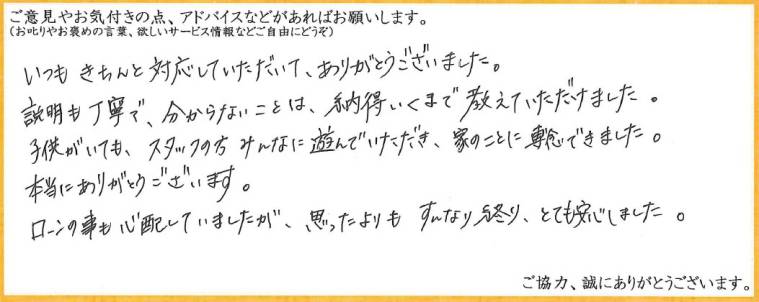 ご意見やお気付きの点、アドバイスなどがあればお願いします。
(お叱りやお褒めの言葉、欲しいサービス情報などご自由にどうぞ)
いつも きちんと対応していただいて、ありがとうございました。
説明も丁寧で、分からないことは、納得いくまで教えていただけました。
子供がいても、スタッフの方 みんなに遊んでいただき、家のことに専念できました。
本当にありがとうございます。
ローンの事も心配していましたが、思ったよりも すんなり終り、とても安心しました。
ご協力、誠にありがとうございます。